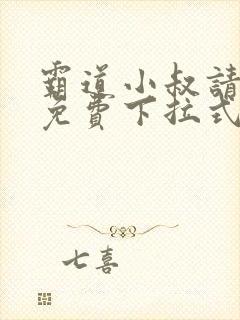 霸道小叔請
免費下拉式
七喜